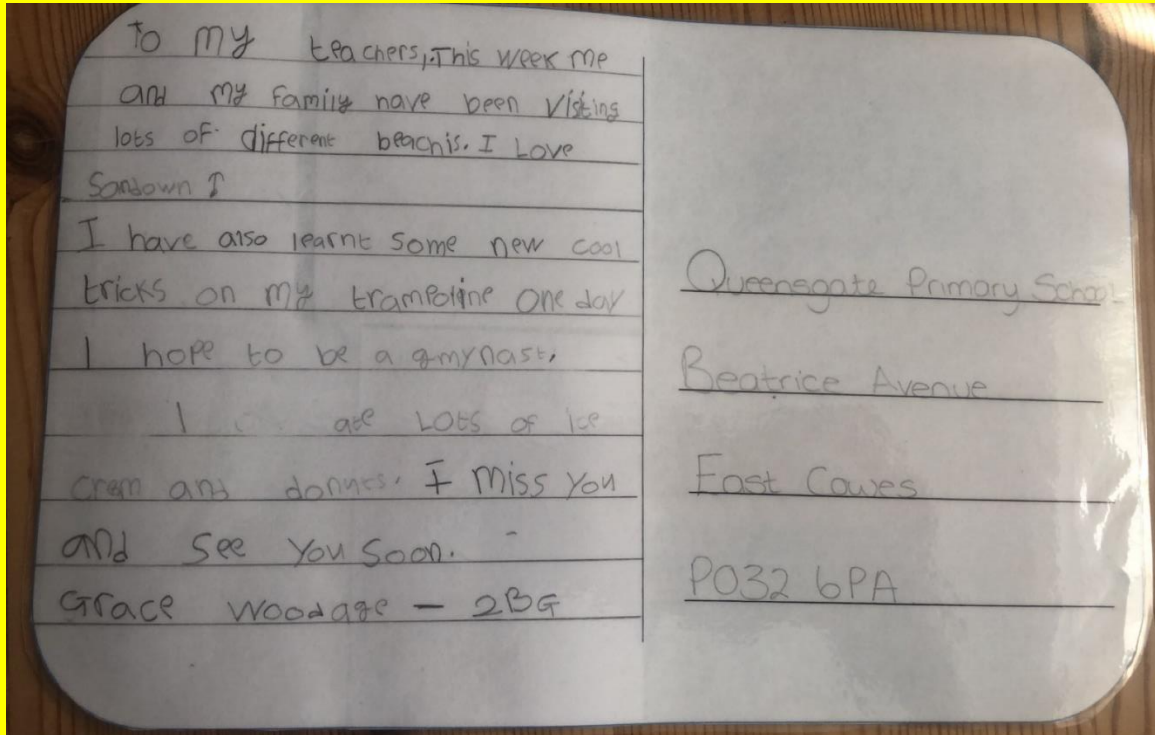 To my teachers, This week me
and my family have been Visting
lots of different beachis. I Love
Sandown
I have also learnt some new cool
tricks on my trampoline One day
I hope to be a gmynast.
I ate Lots of ice
crem and donuts. I miss you
and see you soon.
Grace Woodage - 2BG
Queensgate Primary School
Beatrice Avenue
East Cowes
PO32 6PA